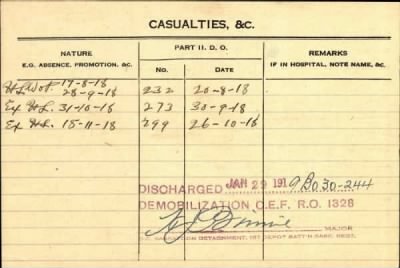 CASUALTIES, &C.
NATURE
E.G. ABSENCE, PROMOTION, &C.
PART II. D. O.
NO. DATE
REMARKS
IF IN HOSPITAL, NOTE NAME, &C.
17-8-18
28-9-18 232 20-8-18
Ex H.L. 31-10-18 273 30-9-18
Ex H.L. 15-11-18 299 26-10-18
DISCHARGED JAN 29 1919 B.O 30-244
DEMOBILIZATION C.E.F. R.O. 1328
MAJOR
O.C. SASKATOON DETACHMENT, 1ST DEPOT BATT'N SASK. REGT.